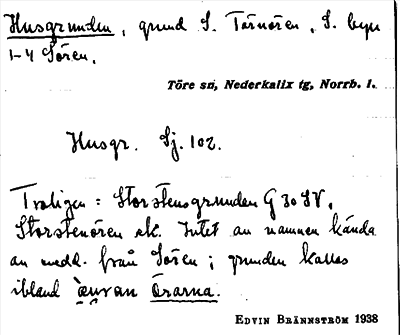 Husgrunden, grund S. Törnören, S. byn
1-4 Sören.
Töre sn, Nederkalix tg, Norrb. l.
Husgr. Sj. 102.
Troligen = Storstensgrunden G 30 SV,
Storstenören ek. Intet av namnen kända
av medd. från Sören; grunden kallas
ibland Örarna.
EDVIN BRÄNNSTRÖM 1938